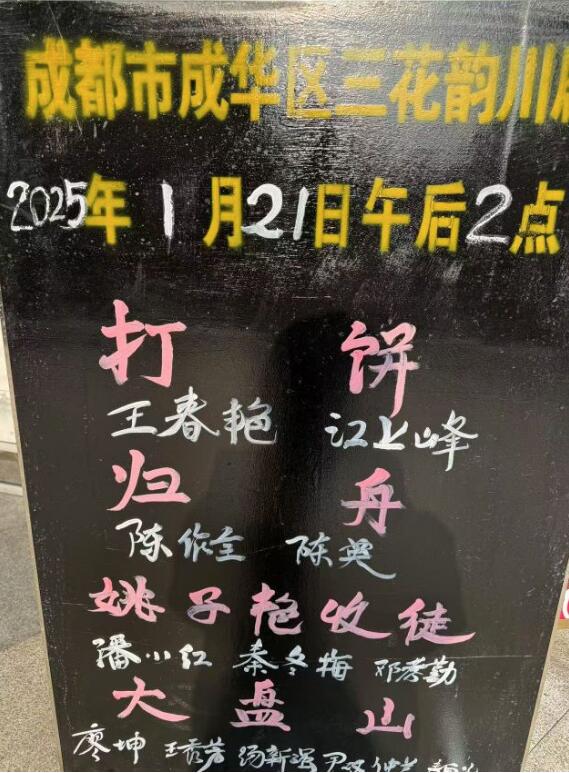 成都市成华区三花韵川剧
2025年1月21日午后2点
打饼
王春艳 江上峰
归舟
陈作全 陈英
姚子艳收徒
潘小红 秦冬梅 邓孝勤
大盘山
廖坤 王秀芳 杨新强